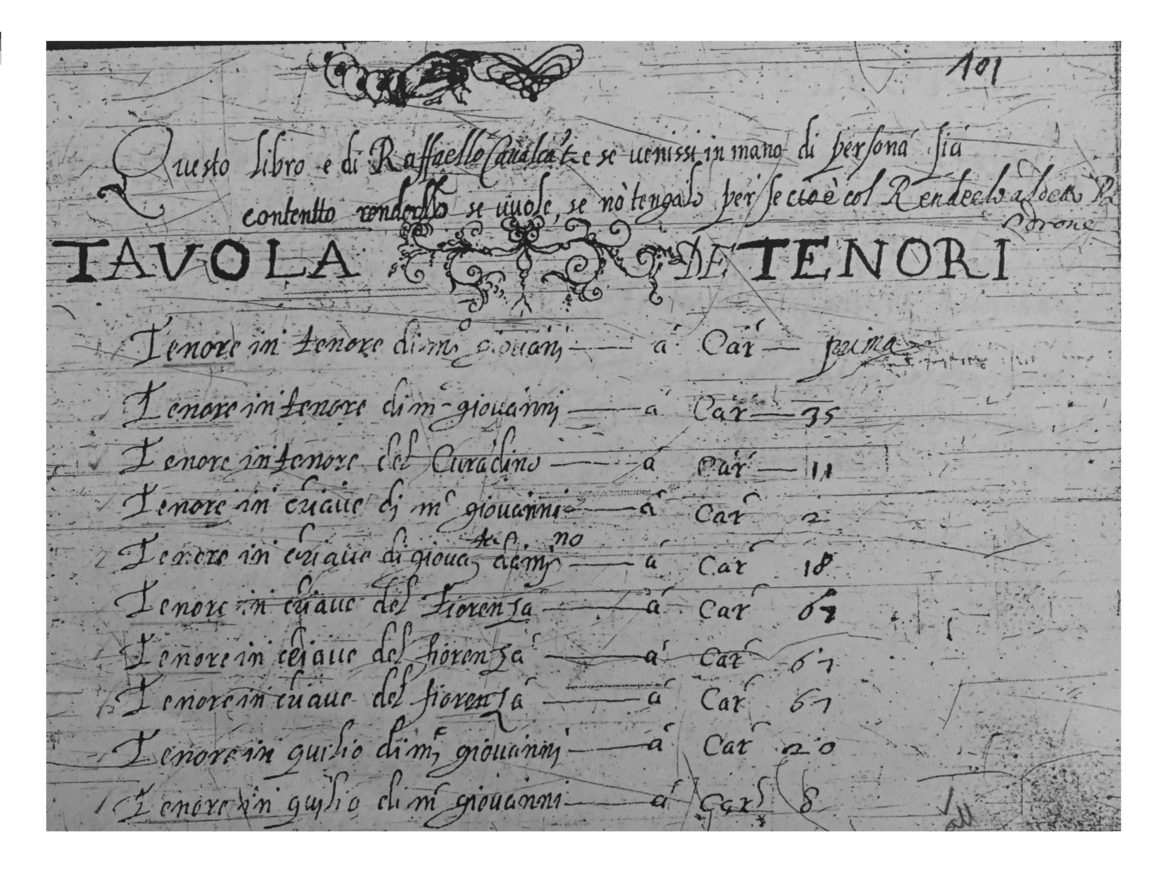 101
Questo libro e di Raffaello Caualcāt e se uenissi in mano di persona sia
contentto renderllo se uuole, se nò tengalo per se cioè col Renderlo aldetto P
adrone
TAVOLA DE TENORI
Tenore in tenore di mᵒ giouani — á Car — prima
Tenore in tenore di mᵒ giouanni — á Car — 35
Tenore in tenore del Curadino — á Car — 11
Tenore in chiaue di mᵒ giouanni — á Car 2
Tenore in chiaue di giouā — á Car 18
Tenore in chiaue del fiorenza — á Car 67
Tenore in chiaue del fiorenza — á Car 67
Tenore in chiaue del fiorenza — á Car 67
Tenore in quilio di mᵒ giouanni — á Car 20
Tenore in quilio di mᵒ giouanni — á Car 8